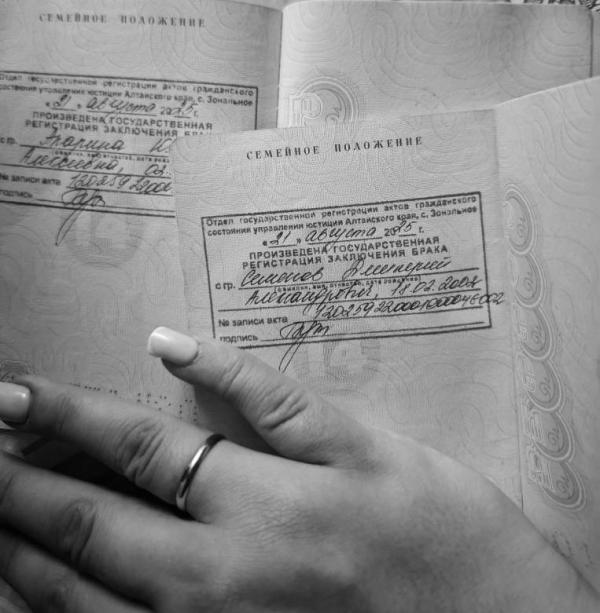 СЕМЕЙНОЕ ПОЛОЖЕНИЕ
Отдел государственной регистрации актов гражданского
состояния управления юстиции Алтайского края, с. Зональное
« 21 » августа 2025 г.
ПРОИЗВЕДЕНА ГОСУДАРСТВЕННАЯ
РЕГИСТРАЦИЯ ЗАКЛЮЧЕНИЯ БРАКА
с гр.
Алексеевна,
№ записи акта
подпись
СЕМЕЙНОЕ ПОЛОЖЕНИЕ
Отдел государственной регистрации актов гражданского
состояния управления юстиции Алтайского края, с. Зональное
« 21 » августа 2025 г.
ПРОИЗВЕДЕНА ГОСУДАРСТВЕННАЯ
РЕГИСТРАЦИЯ ЗАКЛЮЧЕНИЯ БРАКА
с гр. Семенов Дмитрий
(фамилия, имя, отчество, дата рождения)
Александрович, 18.02.2002
№ записи акта
подпись